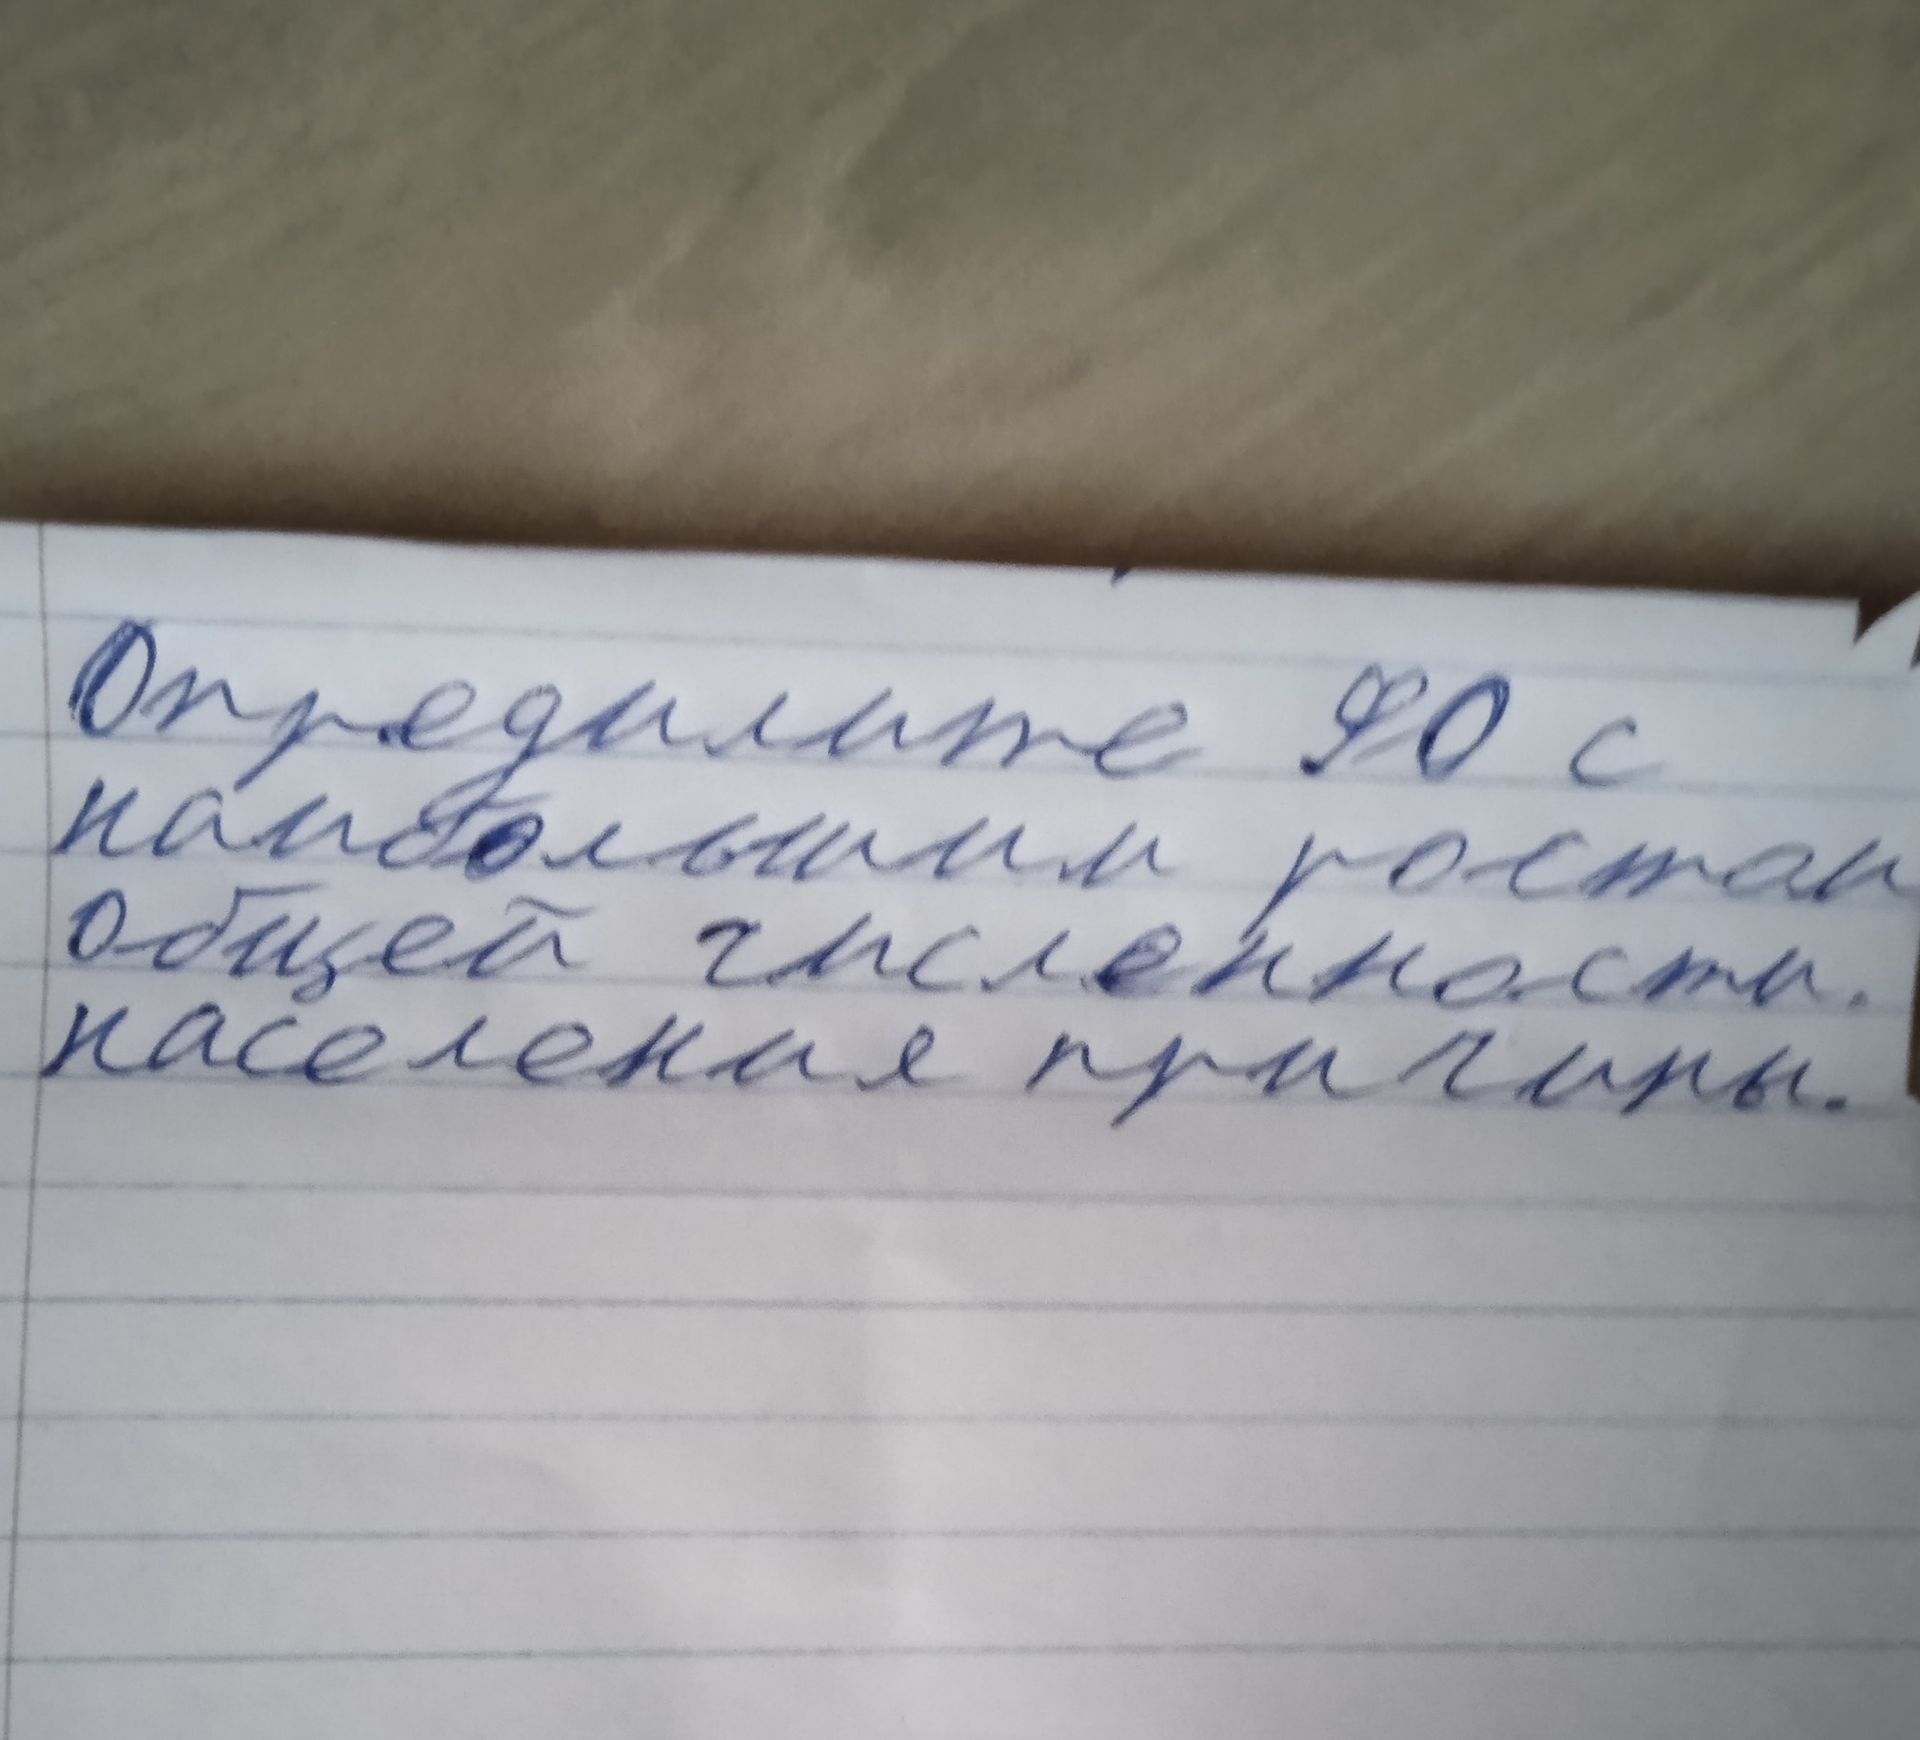 Определите ФО с
наибольшим ростом
общей численности.
населения причины.